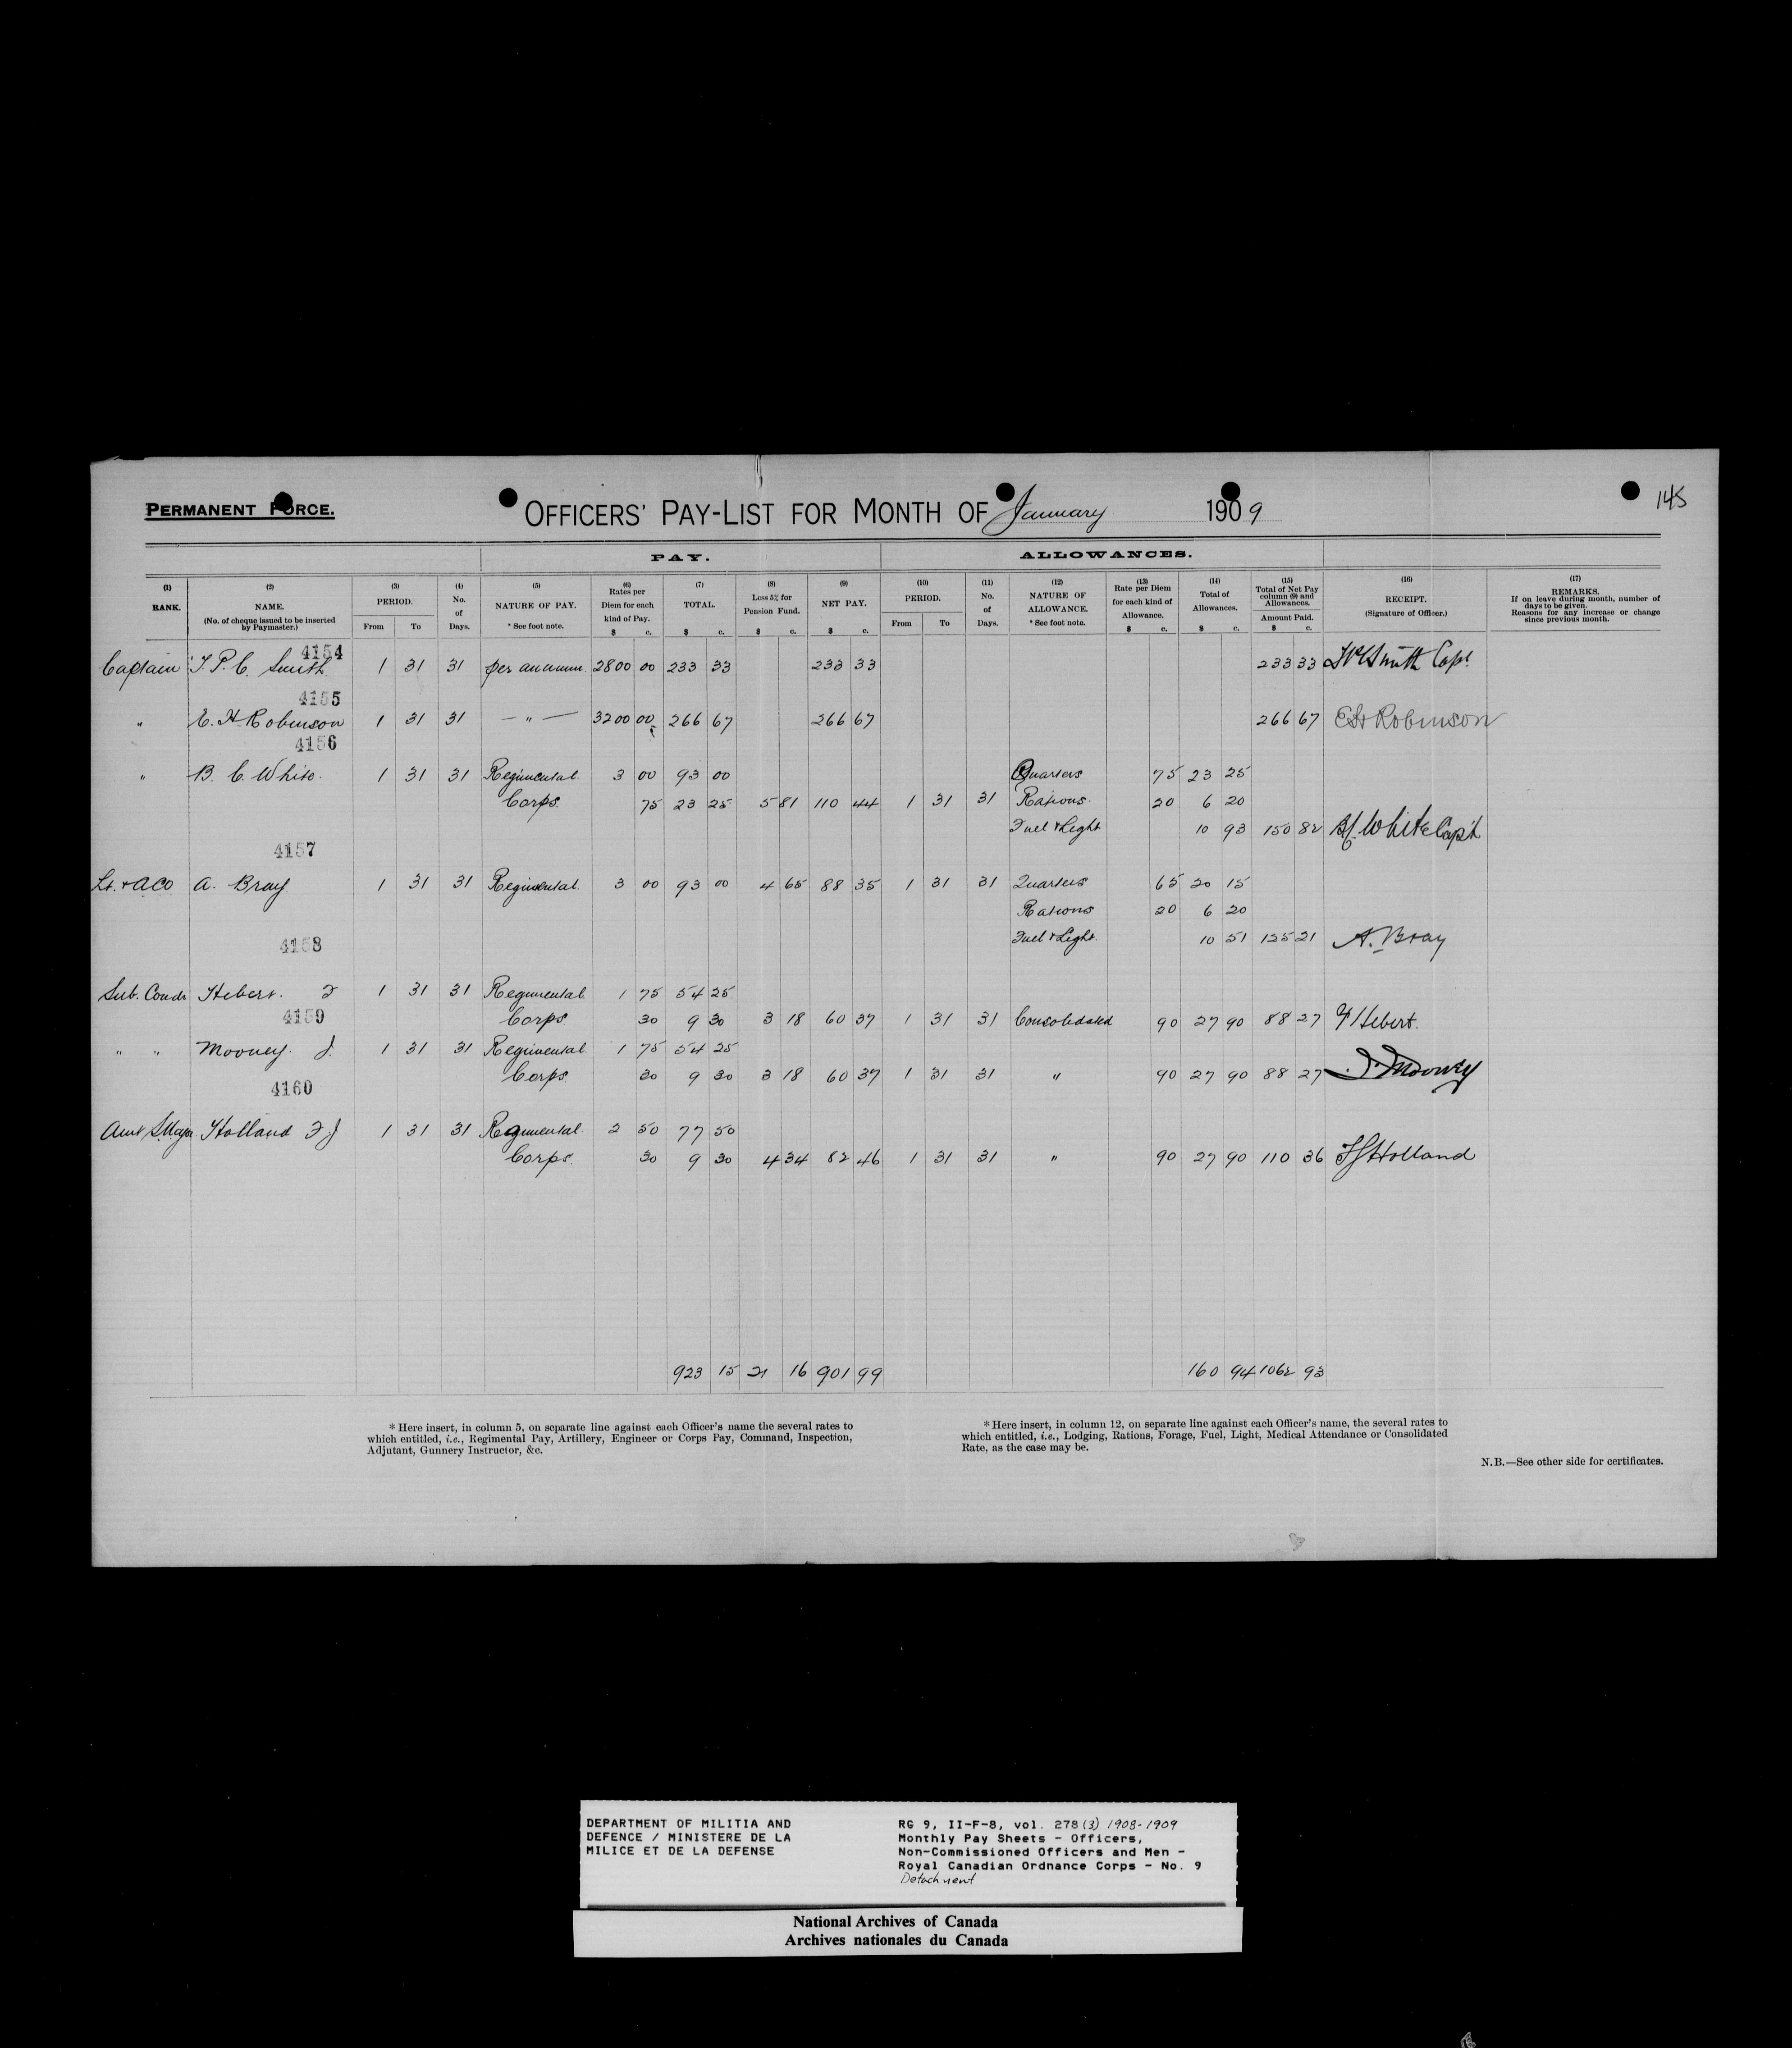 PERMANENT FORCE.
OFFICERS' PAY-LIST FOR MONTH OF January 1909
145
PAY. ALLOWANCES.
(1) RANK.
(2) NAME. (No. of cheque issued to be inserted by Paymaster.)
(3) PERIOD. From To
(4) No. of Days.
(5) NATURE OF PAY. * See foot note.
(6) Rates per Diem for each kind of Pay. $ c.
(7) TOTAL. $ c.
(8) Less 5% for Pension Fund. $ c.
(9) NET PAY. $ c.
(10) PERIOD. From To
(11) No. of Days.
(12) NATURE OF ALLOWANCE. * See foot note.
(13) Rate per Diem for each kind of Allowance. $ c.
(14) Total of Allowances. $ c.
(15) Total of Net Pay column (9) and Allowances. Amount Paid. $ c.
(16) RECEIPT. (Signature of Officer.)
(17) REMARKS. If on leave during month, number of days to be given. Reasons for any increase or change since previous month.
4154
Captain T. P. C. Smith 1 31 31 per annum 2800 00 233 33 233 33 233 33 Smith Capt
4155
" E. H. Robinson 1 31 31 — " — 3200 00 266 67 266 67 266 67 EH Robinson
4156
" B. C. White 1 31 31 Regimental 3 00 93 00 Quarters 75 23 25
Corps 75 23 25 5 81 110 44 1 31 31 Rations 20 6 20
Fuel & Light 10 93 150 82 BC White Capt
4157
Lt. & ACO A. Bray 1 31 31 Regimental 3 00 93 00 4 65 88 35 1 31 31 Quarters 65 20 15
Rations 20 6 20
Fuel & Light 10 51 125 21 A. Bray
4158
Sub. Condr Hebert. F 1 31 31 Regimental 1 75 54 25
4159
Corps 30 9 30 3 18 60 37 1 31 31 Consolidated 90 27 90 88 27 F Hebert.
" " Mooney. J. 1 31 31 Regimental 1 75 54 25
Corps 30 9 30 3 18 60 37 1 31 31 " 90 27 90 88 27 J. Mooney
4160
S. Major Holland F J 1 31 31 Regimental 2 50 77 50
Corps. 30 9 30 4 34 82 46 1 31 31 " 90 27 90 110 36 FJ Holland
923 15 21 16 901 99 160 94 1062 93
* Here insert, in column 5, on separate line against each Officer's name the several rates to
which entitled, i.e., Regimental Pay, Artillery, Engineer or Corps Pay, Command, Inspection,
Adjutant, Gunnery Instructor, &c.
* Here insert, in column 12, on separate line against each Officer's name, the several rates to
which entitled, i.e., Lodging, Rations, Forage, Fuel, Light, Medical Attendance or Consolidated
Rate, as the case may be.
N.B.—See other side for certificates.
DEPARTMENT OF MILITIA AND
DEFENCE / MINISTERE DE LA
MILICE ET DE LA DEFENSE
RG 9, II-F-8, vol. 278(3) 1908-1909
Monthly Pay Sheets - Officers,
Non-Commissioned Officers and Men -
Royal Canadian Ordnance Corps - No. 9
Detachment
National Archives of Canada
Archives nationales du Canada